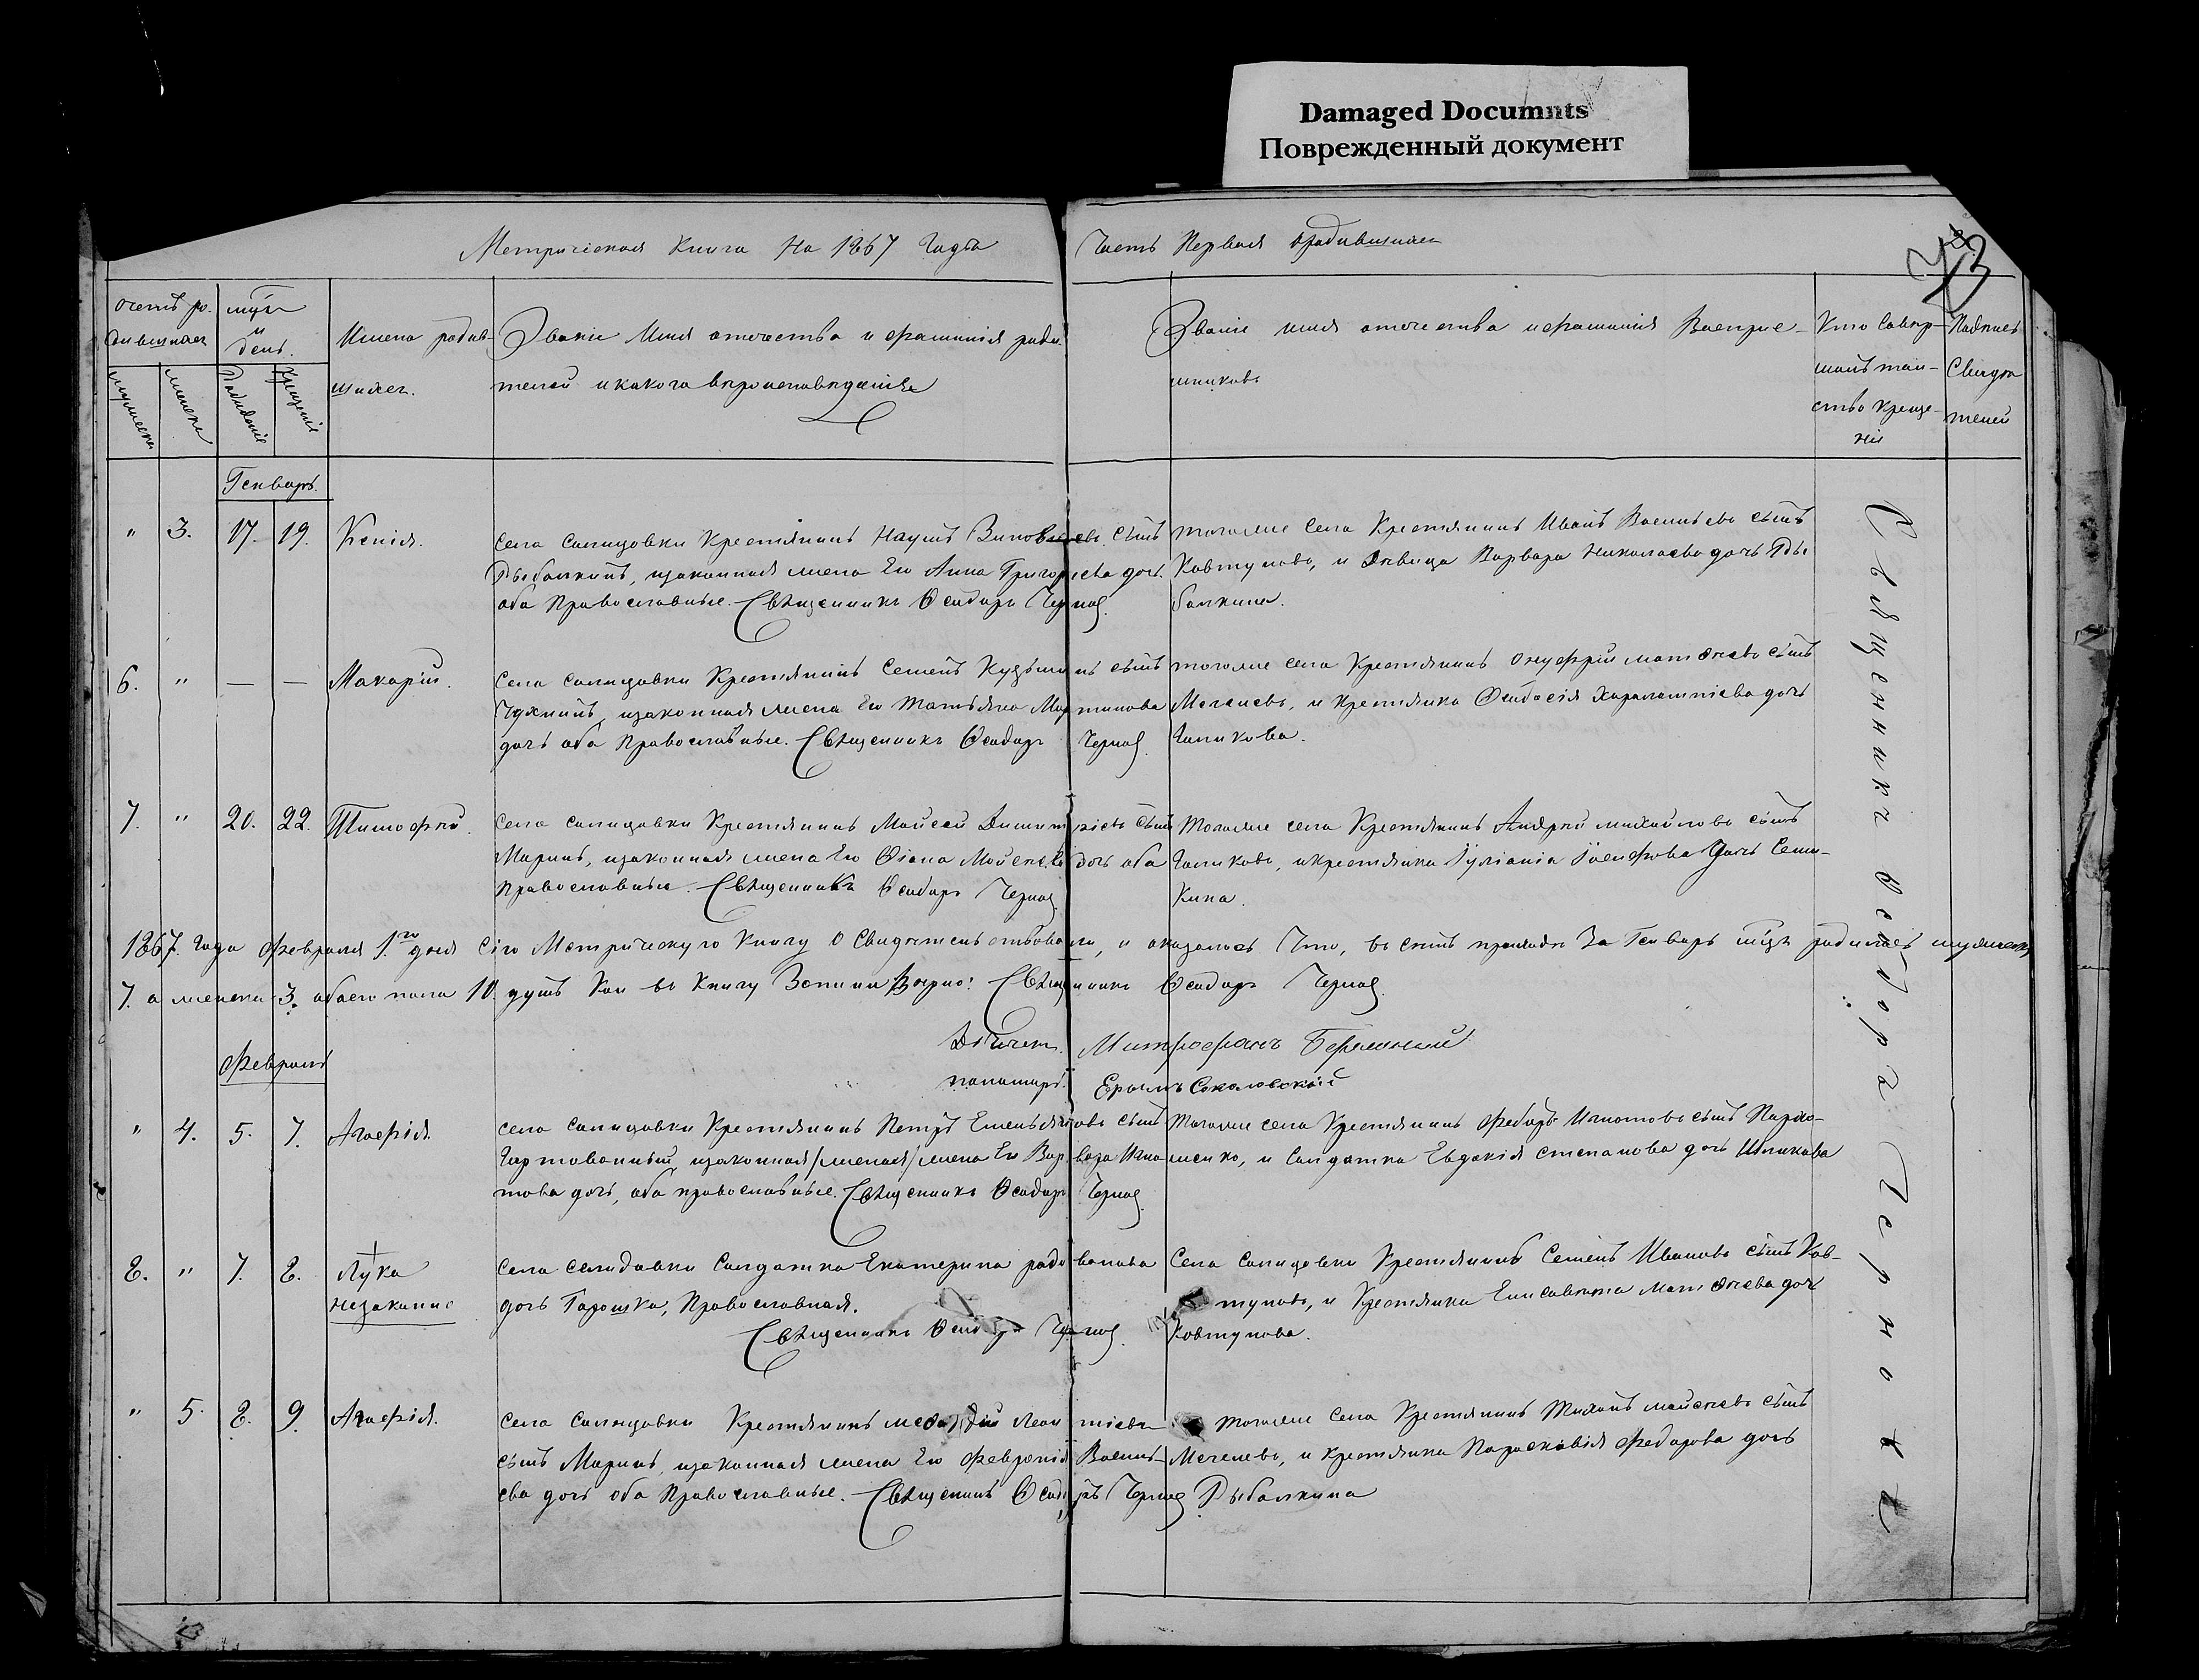 Damaged Documnts
Поврежденный документ
Метрическая Книга На 1867 Годъ Часть Первая О родившихся
Счетъ ро-
дившихся
мужеска
женска
мцъ
и
день.
Рожденія
Крещенія
Имена родив-
шихся.
Званіе Имя отечество и фамилія роди-
телей и какого вѣроисповѣданія
Званіе имя отечество и фамилія Воспріе-
мниковъ
Кто Совер-
шалъ таи-
ство креще-
нія
Подпись
Свидѣ
телей
Генварь.
" 3. 17. 19. Ксенія.
Села Селидовки Крестьянинъ Наумъ Зиновьевъ сынъ
Рыбалкинъ, и законная жена Его Анна Григорьева дочь
оба Православные. Священникъ Ѳеодоръ Чернов
тогоже Села Крестьянинъ Иванъ Васильевъ сынъ
Ковтуновъ, и Дѣвица Варвара Николаева дочь Ры-
балкина.
6. " — — Макарій.
Села Селидовки Крестьянинъ Семенъ Кузьминъ сынъ
и законная жена Его Татьяна Мартинова
дочь оба Православные. Священникъ Ѳеодоръ Чернов
тогоже села Крестьянинъ Онуфрій Матѳеевъ сынъ
и крестьянка Ѳеодосія Харалампіева дочь
Галикова.
7. " 20. 22. Тимоѳей.
Села Селидовки Крестьянинъ Моисей Димитріевъ сынъ
Маринъ, и законная жена Его Моисеева дочь оба
Православные. Священникъ Ѳеодоръ Чернов
Тогоже села Крестьянинъ Андрей Михайловъ сынъ
Галиковъ, и крестьянка Іуліанія Іосифова Дочь Семи-
кина.
1867. Года Февраля 1.го дня Сію Метрическую Книгу Освидѣтельствовали, и оказалось Что, въ ней приходѣ За Генварь мцъ родилось мужеска
7. а женска 3. обоего пола 10. душъ Кои въ Книгу Записаны Вѣрно: Священникъ Ѳеодоръ Чернов
Дьячекъ. Митрофанъ
Пономарь. Ераслъ Соколовскій
Февраль
" 4. 5. 7. Агафія.
села Селидовки Крестьянинъ Петръ Емельяновъ сынъ
и законная /женая/ жена Его Варвара Игна
това дочь, оба православные. Священникъ Ѳеодоръ Чернов
Тогоже села Крестьянинъ Федоръ Игнатовъ сынъ Пархо-
менко, и Солдатка Евдокія Степанова дочь Шпикова
8. " 7. 8. Лука
незаконно
Села Селидовки Солдатка Екатерина Родіонова
дочь Гарошка, Православная.
Священникъ Ѳеодоръ Чернов
Села Селидовки Крестьянинъ Семенъ Ивановъ сынъ Ков-
туновъ, и Крестьянка Елисавета Матѳеева доч
Ковтунова.
" 5. 8. 9. Агафія.
Села Селидовки Крестьянинъ Меѳодій Леонтіевъ
сынъ Маринъ, и законная жена Его Февронія Василь-
ева дочь оба Православные. Священникъ Ѳеодоръ Чернов
тогоже Села Крестьянинъ Тихонъ Моисеевъ сынъ
и крестьянка Параскевія Федорова дочь
Рыбалкина
Священникъ Ѳеодоръ